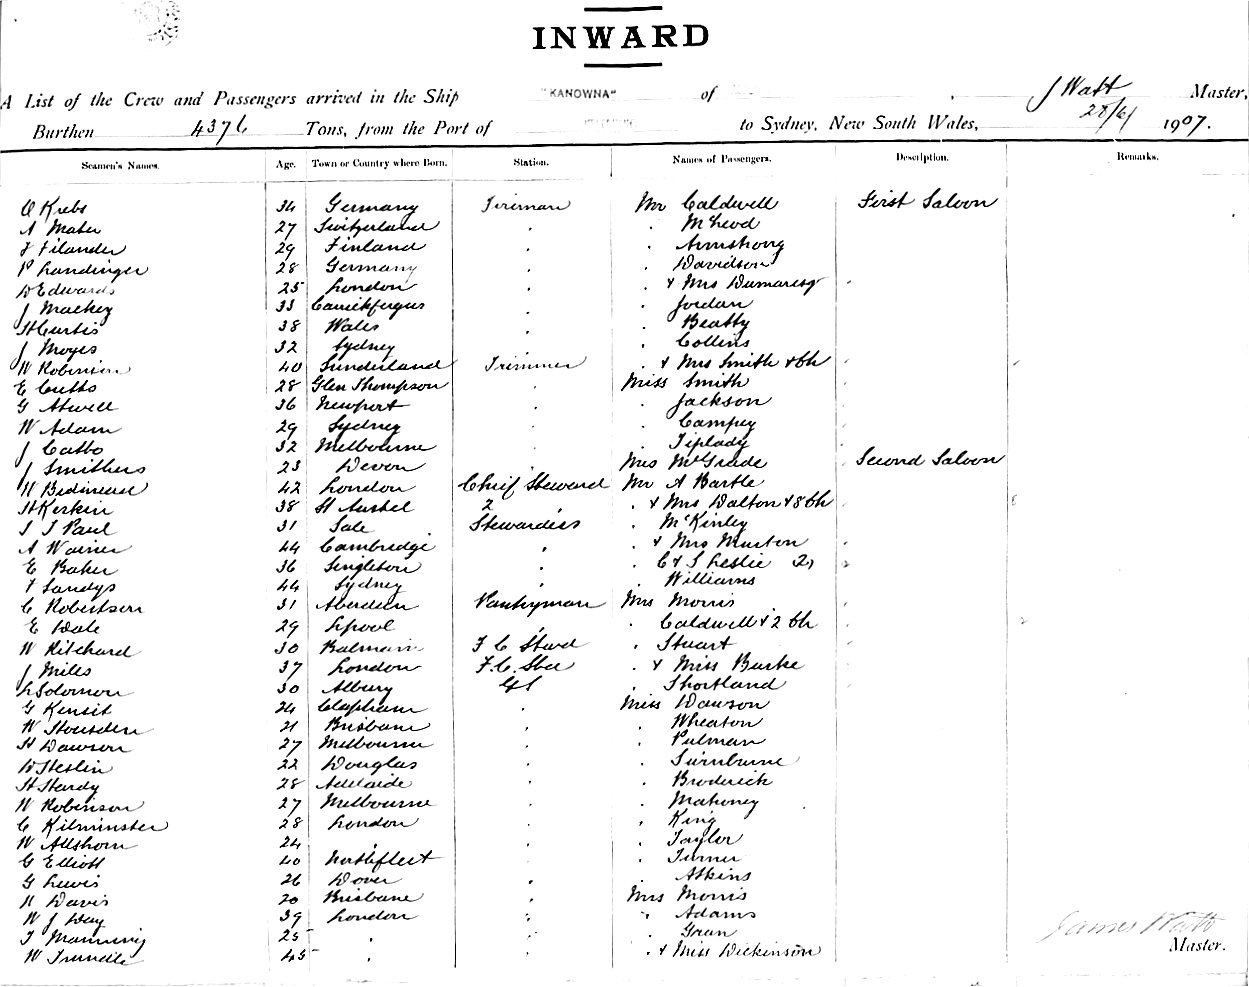 INWARD
A List of the Crew and Passengers arrived in the Ship "KANOWNA" of , J Watt Master,
Burthen 4376 Tons, from the Port of to Sydney, New South Wales, 28/6/ 1907.
Seamen's Names. Age. Town or Country where Born. Station. Names of Passengers. Description. Remarks.
O Krebs 34 Germany Fireman Mr Caldwell First Saloon
A Mater 27 Switzerland " " McLeod
F Filander 29 Finland " " Armstrong
P Landinger 28 Germany " " Davidson
D Edwards 25 London " " & Mrs Dumaresq
J Mackey 33 Carrickfergus " " Jordan
H Curtis 38 Wales " " Beatty
J Moyes 32 Sydney " " Collins
W Robinson 40 Sunderland Trimmer " & Mrs Smith & Ch
E Cutts 28 Glen Thompson " Miss Smith
G Atwell 36 Newport " " Jackson
W Adam 29 Sydney " " Campey
J Catbo 32 Melbourne " " Tiplady
J Smithers 23 Devon " Mrs McGrade Second Saloon
42 London Chief Steward Mr A Bartle
H Kerkin 38 St Austel 2 " " & Mrs Dalton & 8 Ch
S J Paul 31 Sale Stewardess " McKinley
A Warner 44 Cambridge " " & Mrs Murton
E Baker 36 Singleton " " C & S Leslie 2)
F Sandys 44 Sydney " " Williams
C Robertson 31 Aberdeen Pantryman Mrs Morris
E Dale 29 Lpool " " Caldwell & 2 Ch
W Ritchard 30 Balmain F C Stwd " Stuart
J Miles 37 London F.C. " & Miss Burke
L Solomon 30 Albury GS " Shortland
G Kensit 24 Clapham " Miss Dawson
W 21 Brisbane " " Wheaton
H Dawson 27 Melbourne " " Pulman
D Heslin 22 Douglas " " Swinburne
H Hardy 28 Adelaide " " Broderick
W Robinson 27 Melbourne " " Mahoney
C Kilminster 28 London " " King
W Allshorn 24 " " " Taylor
G Elliott 40 Northfleet " " Turner
G Lewis 26 Dover " " Atkins
H Davis 20 Brisbane " Mrs Morris
W J Day 39 London " " Adams
T Manning 25 " " " Gran
W Trundle 45 " " & Miss Dickinson
James Watt
Master.